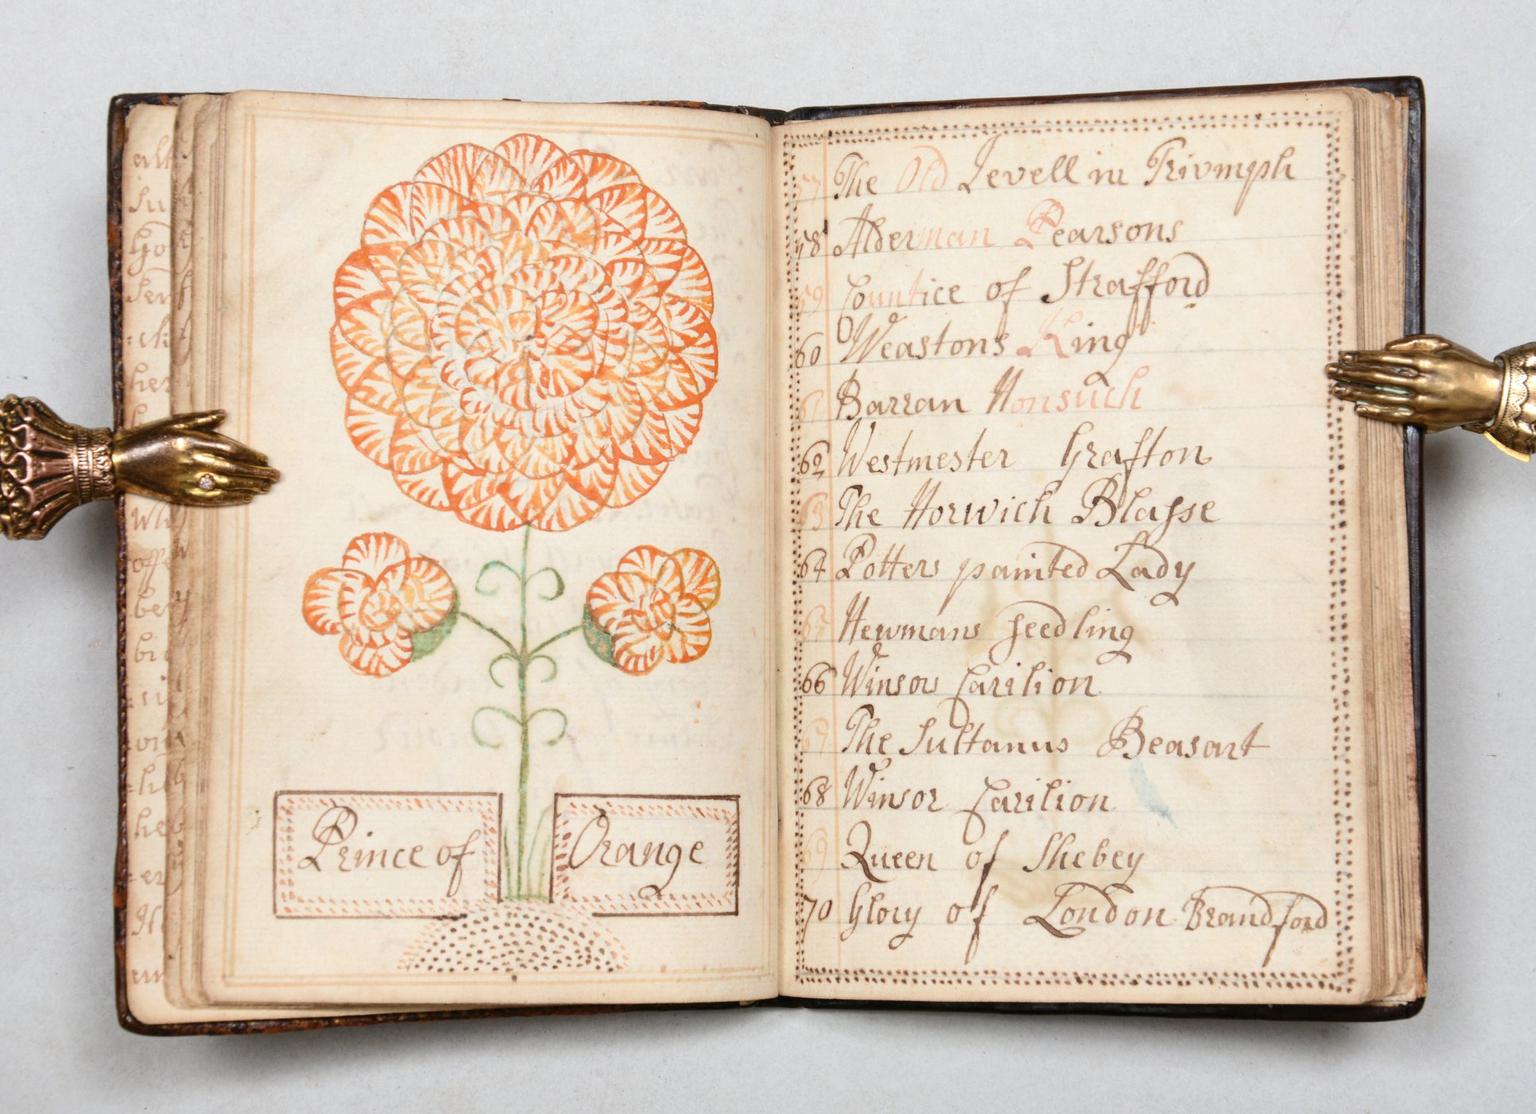 Prince of Orange
57 The Old Jevell in Trivmph
58 Alderman Pearsons
59 Countice of Strafford
60 Weastons King
61 Barran Nonsuch
62 Westmester Grafton
63 The Norwich Blasse
64 Potters painted Lady
65 Newmans Seedling
66 Winsor Carilion
67 The Sultanus Beasart
68 Winsor Carilion
69 Queen of Shebey
70 Glory of London Brandford